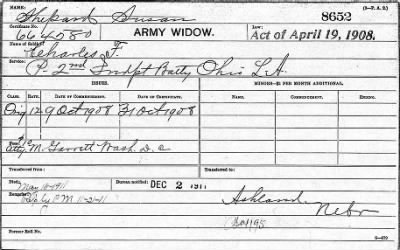 (3—P. A. G.)
Name:
Shepard Susan
8652
Certificate No.
664580
ARMY WIDOW.
Law:
Act of April 19, 1908.
Name of Soldier:
Charles F.
Service:
P. 2nd Indpt Batty Ohio L.A.
ISSUES.
MINORS—$2 PER MONTH ADDITIONAL.
CLASS. RATE. DATE OF COMMENCEMENT. DATE OF CERTIFICATE. NAME. DATE OF COMMENCEMENT.
Orig 12 9 Oct 1908 31 Oct 1908
Atty M. Garrett Wash. D.C
Transferred from
Transferred to
Died:
Bureau notified:
DEC 2 1911
Remarks:
11-2-11
Ashland
Nebr
Former Roll No.